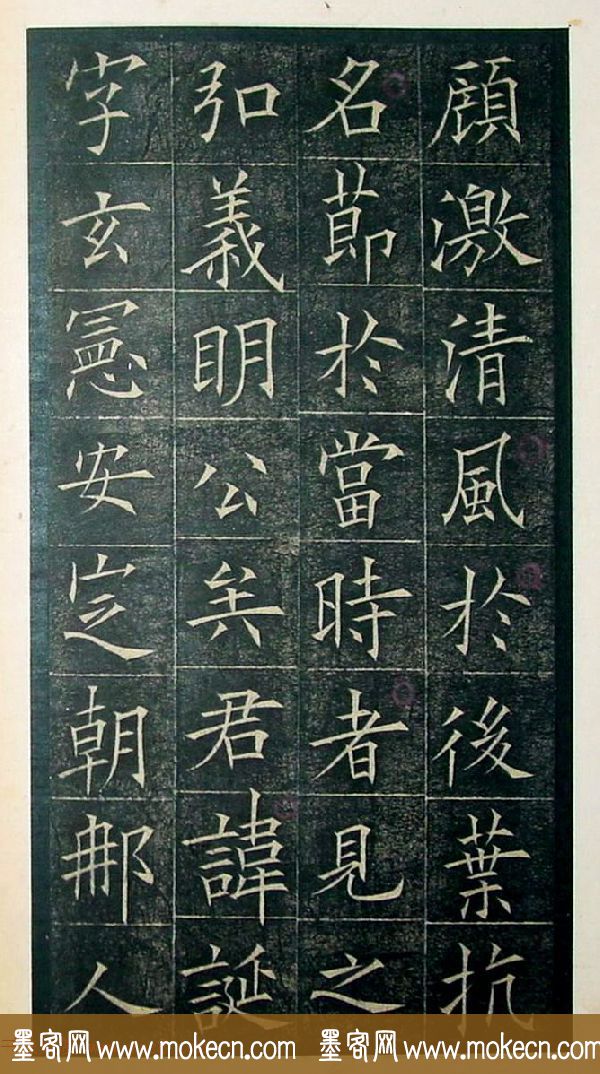 顧激清風於後葉抗
名節於當時者見之
弘義明公矣君諱誕
字玄憲安定朝那人
墨客网 www.mokecn.com 墨客网 www.mokecn.com